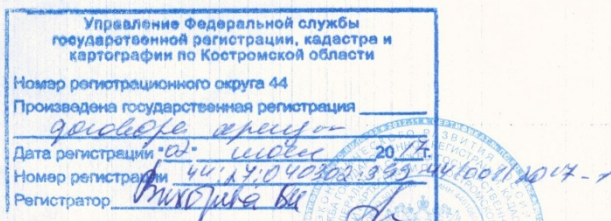 Управление Федеральной службы
государственной регистрации, кадастра и
картографии по Костромской области
Номер регистрационного округа 44
Произведена государственная регистрация
договора аренды
Дата регистрации "02" июня 2017г.
Номер регистрации 44:27:040302:399-44/001/2017-1
Регистратор